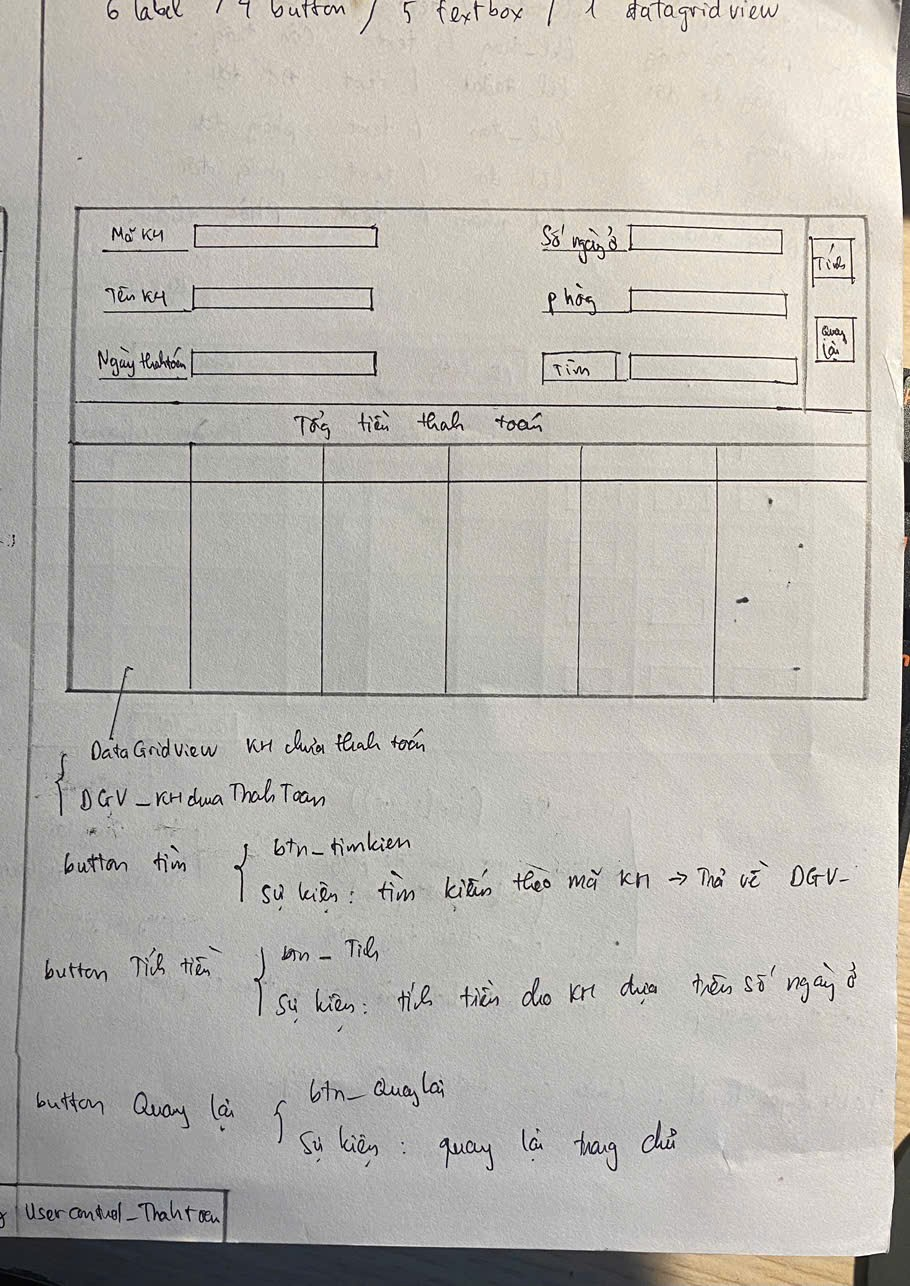 6 label / 4 button / 5 textbox / 1 datagridview
Mã KH
Số ngày ở
Tính
Tên KH
phòng
Quay lại
Ngày thanh toán
Tìm
Tổng tiền thanh toán
DataGridview KH chưa thanh toán
DGV_KHchuaThanhToan
button tìm
btn_timkien
sự kiện: tìm kiếm theo mã KH → Trả về DGV-
button Tính tiền
btn_Tinh
Sự kiện: tính tiền cho KH dựa trên số ngày ở
button Quay lại
btn_Quaylai
Sự kiện: quay lại trang chủ
Usercontrol_Thanhtoan